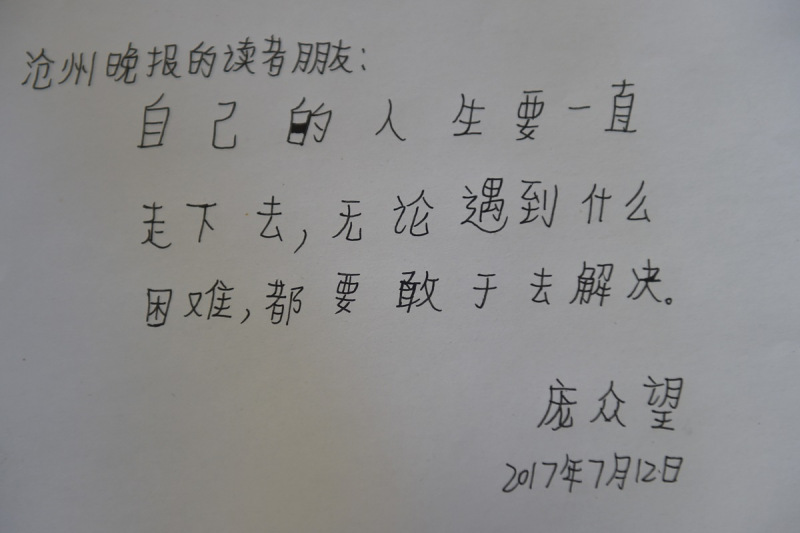 沧州晚报的读者朋友：
自己的人生要一直
走下去，无论遇到什么
困难，都要敢于去解决。
庞众望
2017年7月12日